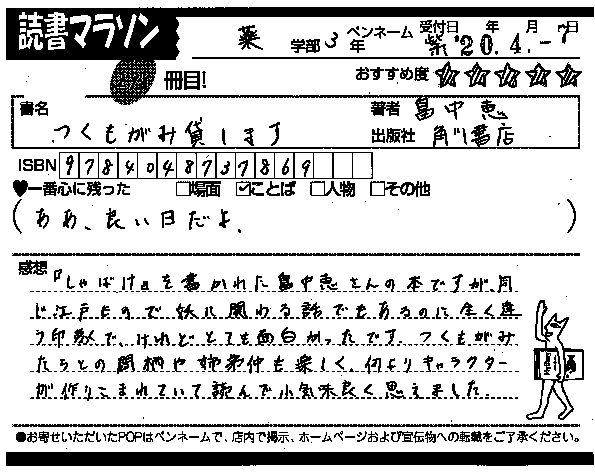 読書マラソン
冊目!
薬 学部 3 年 ペンネーム 紫 受付日 年 月 日 '20.4.-7
おすすめ度 ☆☆☆☆☆
書名 つくもがみ貸します
著者 畠中 恵
出版社 角川書店
ISBN 9784048737869
♥一番心に残った □場面 ☑ことば □人物 □その他
(ああ、良い日だよ、)
感想
『しゃばけ』を書かれた畠中恵さんの本ですが、同
じ江戸もので妖に関わる話でもあるのに全く違
う印象で、けれどとても面白かったです。つくもがみ
たちとの関柄や姉弟仲も楽しく、何よりキャラクター
が作りこまれていて読んで小気味良く思えました。
●お寄せいただいたPOPはペンネームで、店内で掲示、ホームページおよび宣伝物への転載をご了承ください。